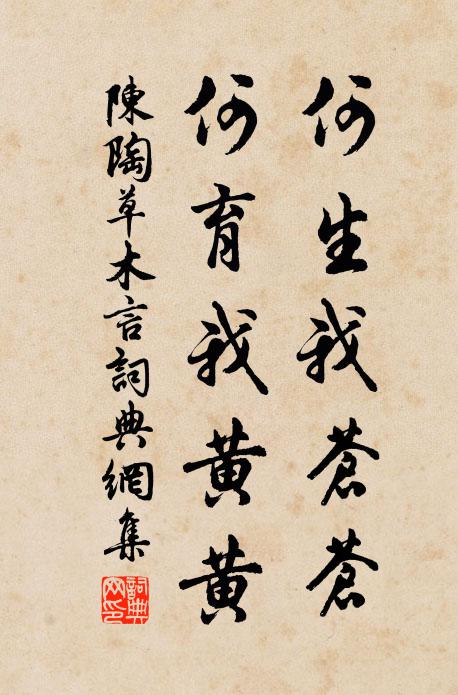 何生我蒼蒼
何育我黃黃
陳陶草木言詞典網集
詞典網印